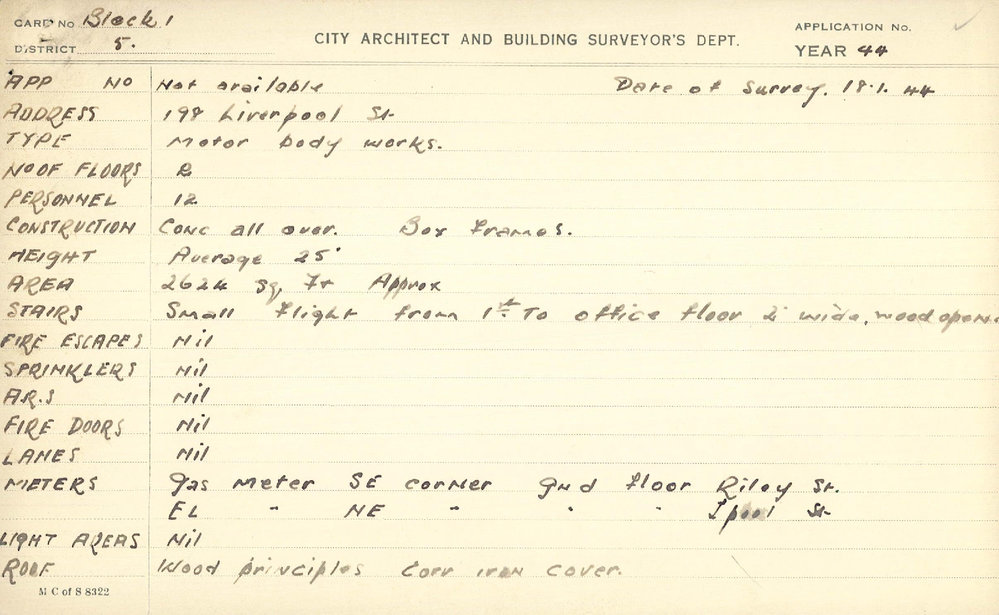 CARD No Block 1
DISTRICT 5.
CITY ARCHITECT AND BUILDING SURVEYOR'S DEPT.
APPLICATION No.
YEAR 44
APP NO Not available Date of Survey. 18.1.44
ADDRESS 198 Liverpool St
TYPE Motor body works.
NO OF FLOORS 2
PERSONNEL 12
CONSTRUCTION Conc all over. Box frames.
HEIGHT Average 25'
AREA 2624 sq. Ft Approx
STAIRS Small flight from 1st To office floor 2' wide, wood open
FIRE ESCAPES Nil
SPRINKLERS Nil
A.R.S Nil
FIRE DOORS Nil
LANES Nil
METERS Gas meter SE corner gnd floor Riley St.
EL " NE " " " Lpool St
LIGHT AREAS Nil
ROOF Wood principles Corr iron cover.
M C of S 8322